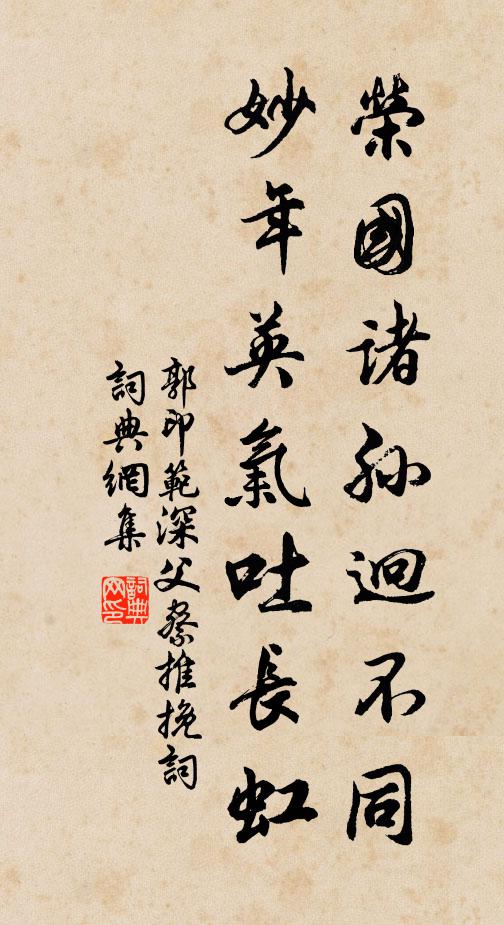 榮國諸孫迥不同
妙年英氣吐長虹
郭印範深父察推挽詞
詞典網集
詞典网印